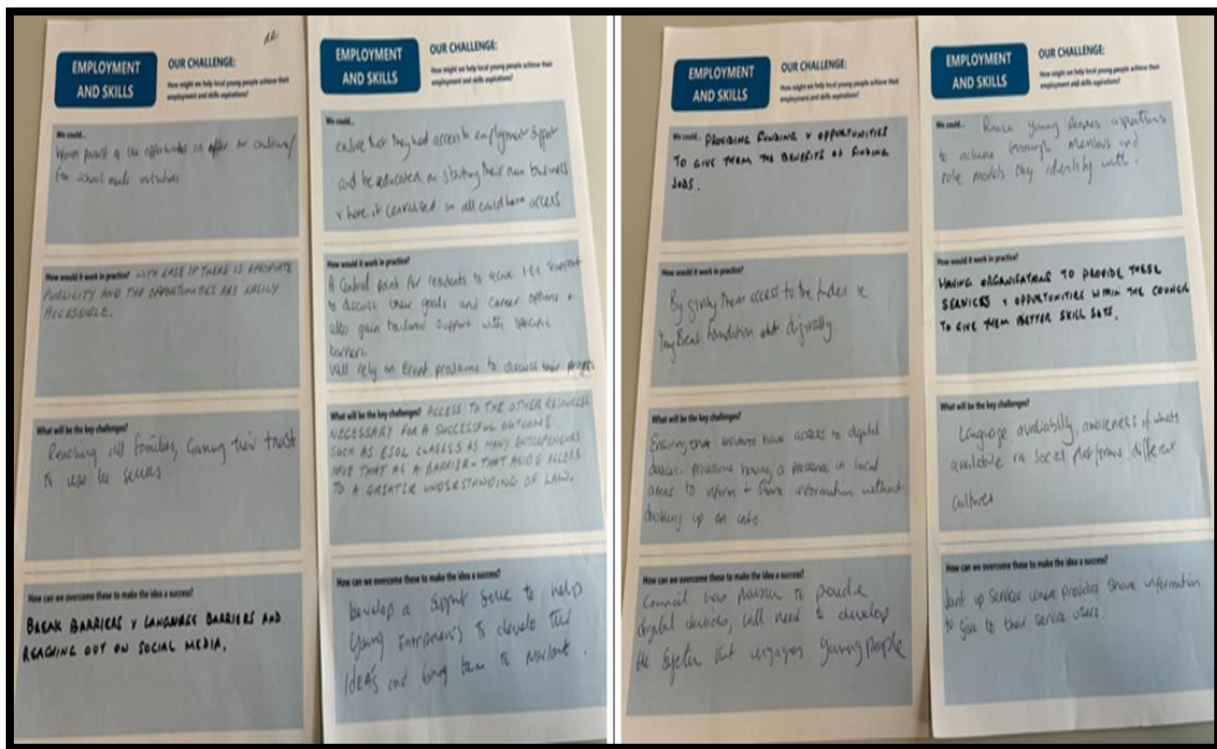 EMPLOYMENT
AND SKILLS
OUR CHALLENGE:
How might we help local young people achieve their
employment and skills aspirations?
We could...
Inform parent of the opportunities on offer for children/
school made initiatives
How would it work in practice? WITH EASE IF THERE IS APROPIATE
PUBLICITY AND THE OPPORTUNITIES ARE EASILY
ACCESSIBLE.
What will be the key challenges?
Reaching all families, Gaining their trust
to use the
How can we overcome these to make the idea a success?
BREAK BARRIERS & LANGUAGE BARRIERS AND
REACHING OUT ON SOCIAL MEDIA.
EMPLOYMENT
AND SKILLS
OUR CHALLENGE:
How might we help local young people achieve their
employment and skills aspirations?
We could...
ensure that they had access to employment support
and be educated on starting their own business
& have it centralised so all could have access
How would it work in practice?
A Central point for residents to 1-1 support
to discuss their goals and career options +
also gain tailored support with specific
barriers.
Will rely on Brent provisions to discuss their
What will be the key challenges? ACCESS TO THE OTHER RESOURCES
NECESSARY FOR A SUCCESSFUL OUTCOME
SUCH AS ESOL CLASSES AS MANY ENTREPENEURS
HAVE THAT AS A BARRIER - THAT ACCESS
TO A GREATER UNDERSTANDING OF LAW.
How can we overcome these to make the idea a success?
Develop a support to help
Young to develop their
IDEAS and bring them to
EMPLOYMENT
AND SKILLS
OUR CHALLENGE:
How might we help local young people achieve their
employment and skills aspirations?
We could... PROVIDING FUNDING & OPPORTUNITIES
TO GIVE THEM THE BENEFITS OF FINDING
JOBS.
How would it work in practice?
By giving them access to the
Brent foundation digitally.
What will be the key challenges?
Ensuring that residents have access to digital
devices. provisions having a presence in local
areas to inform + share information without
up on
How can we overcome these to make the idea a success?
Council to
digital devices, will need to develop
the that engages young people
EMPLOYMENT
AND SKILLS
OUR CHALLENGE:
How might we help local young people achieve their
employment and skills aspirations?
We could... Raise young peoples aspirations
to achieve through mentors and
role models they identify with.
How would it work in practice?
HAVING ORGANISATIONS TO PROVIDE THESE
SERVICES & OPPORTUNITIES WITHIN THE COUNCIL
TO GIVE THEM BETTER SKILL SETS.
What will be the key challenges?
Language, availability, awareness of whats
available social platforms different
cultures
How can we overcome these to make the idea a success?
up services where providers share information
to give to their service users.